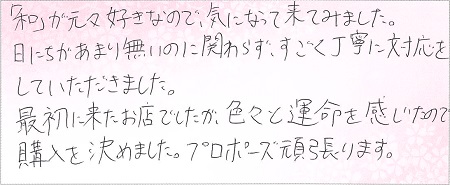 「和」が元々好きなので、気になって来てみました。
日にちがあまり無いのに関わらず、すごく丁寧に対応を
していただきました。
最初に来たお店でしたが、色々と運命を感じたので
購入を決めました。プロポーズ頑張ります。